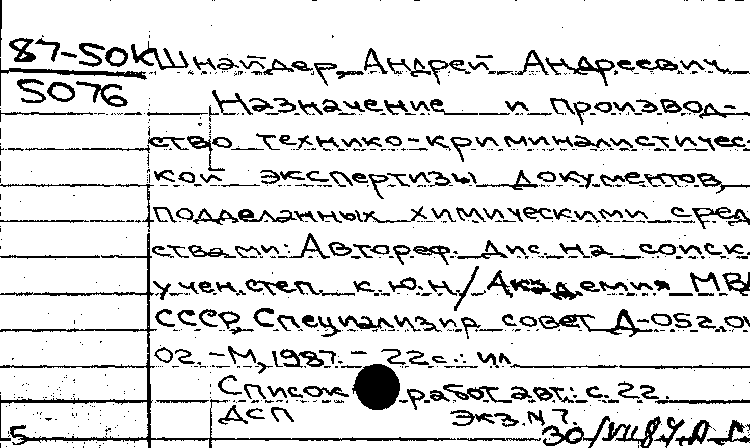 87-50К Шнайдер, Андрей Андреевич
5076
Назначение и производ-
ство технико-криминалистичес
кой экспертизы документов,
подделанных химическими сред
ствами: Автореф. дис. на соиск
учен. степ. к.ю.н. / Академия МВД
СССР, Специализир. совет Д-052.01
02. -М., 1987. - 22 с.: ил.
Список работ авт.: с. 22
ДСП экз. N 7
5 30/VII 87.